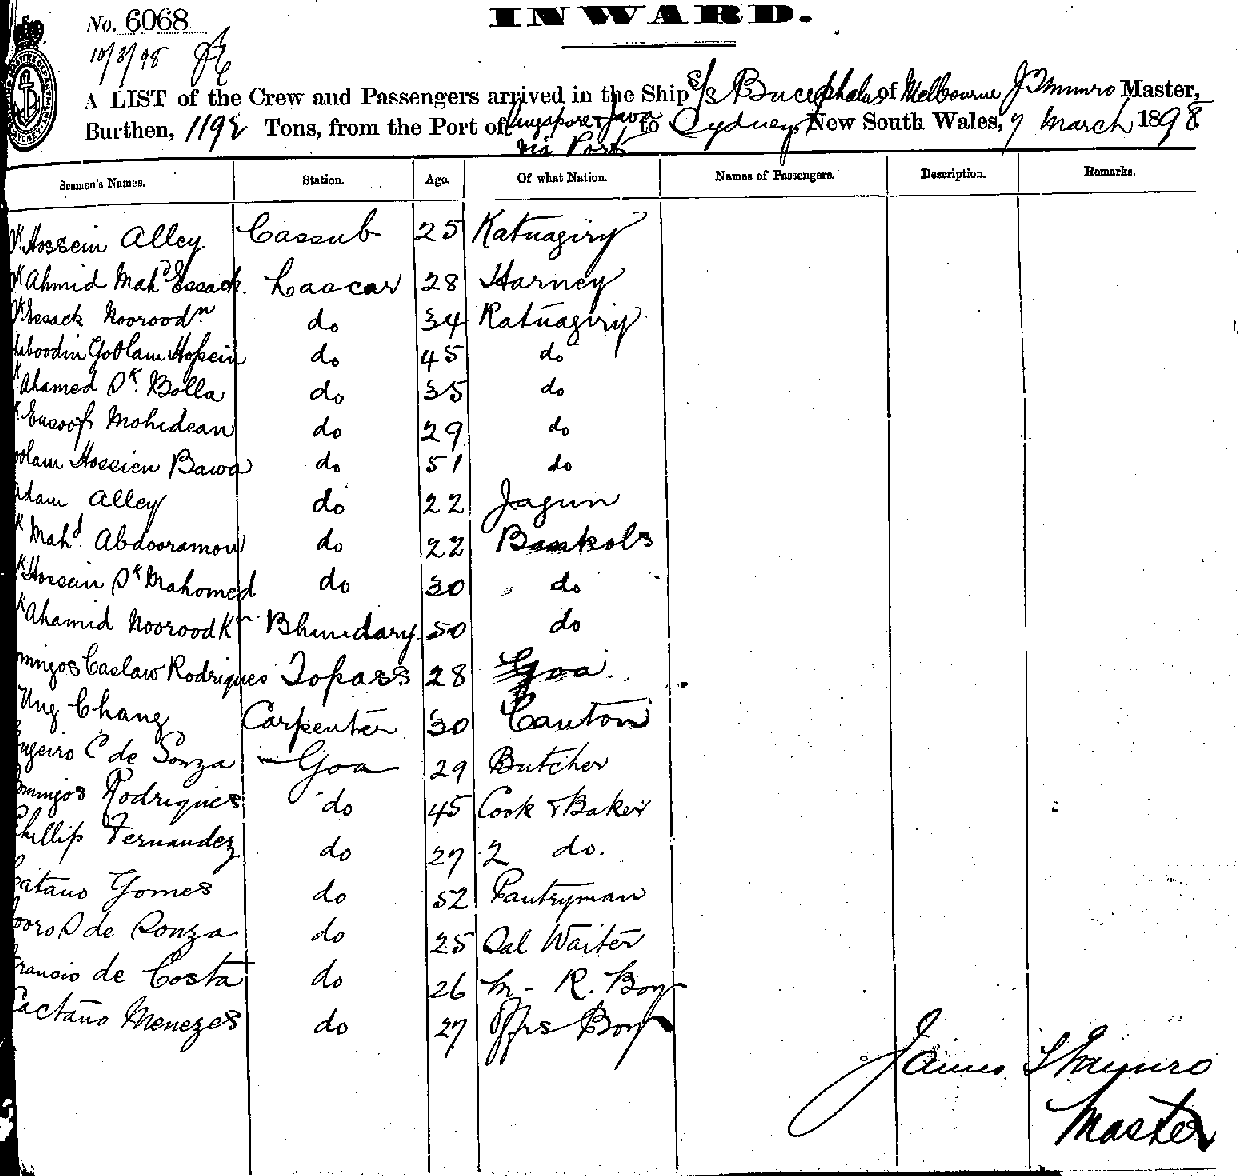 No. 6068
INWARD.
10/3/98
A LIST of the Crew and Passengers arrived in the Ship S/s Bucephalus of Melbourne J T Munro Master,
Burthen, 1198 Tons, from the Port of Singapore & Java to Sydney, New South Wales, 9 March 1898
via Ports
Seamen's Names. Station. Age. Of what Nation. Names of Passengers. Description. Remarks.
Hossein Alley Cassub 25 Ratnagiry
Ahmid Mahd Essack Lascar 28 Harney
Essack Nooroodn do 34 Ratnagiry
Goolam Hossein do 45 do
Ahamed Sk. Bolla do 35 do
Eusoof Mohidean do 29 do
Hossien Bawa do 51 do
Alley do 22 Jagun
Mahd. Abdooramon do 22 Bankols
Hossain Sk Mahomed do 30 do
Ahamid Nooroodk Bhundary 50 do
Caslaw Rodrigues Topass 28 Goa
Ung Chang Carpenter 30 Canton
C de Souza Goa 29 Butcher
Rodrigues do 45 Cook & Baker
Phillip Fernandez do 27 2 do.
Caitano Gomes do 52 Pantryman
S de Souza do 25 Sal Waiter
Francis de Costa do 26 M. R. Boy
Caetano Menezes do 27 Offrs Boy
James T Munro
Master